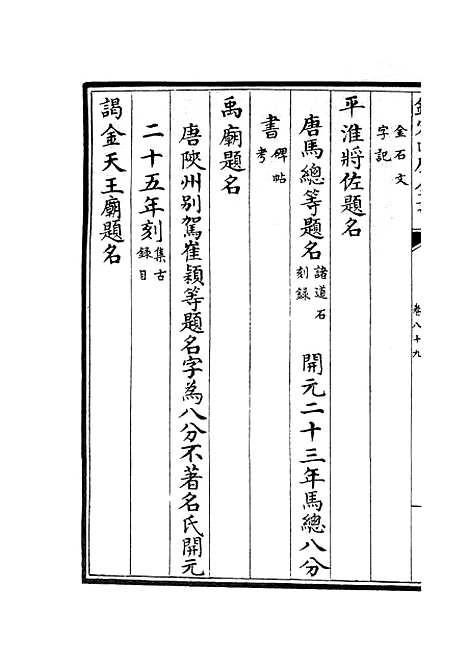 卷八十九
金石文
字記
平淮將佐題名
唐馬總等題名諸道石刻錄 開元二十三年馬總八分
書碑帖考
禹廟題名
唐陜州別駕崔穎等題名字為八分不著名氏開元
二十五年刻集古錄目
謁金天王廟題名